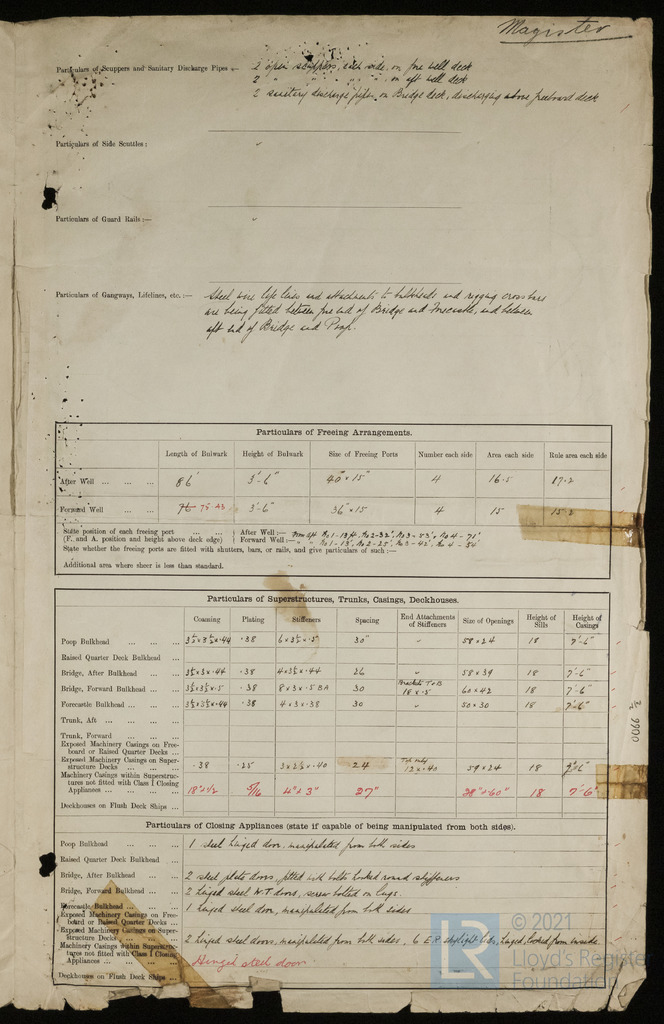 Magister
Particulars of Scuppers and Sanitary Discharge Pipes :— 2 open scuppers, each side, on fore well deck
2 " " " " on aft well deck
2 sanitary discharge pipes on Bridge deck, discharging above freeboard deck
Particulars of Side Scuttles :
Particulars of Guard Rails :—
Particulars of Gangways, Lifelines, etc. :— Steel wire life lines and attachments to bulkheads and rigging cross bars
are being fitted between fore end of Bridge and Forecastle, and between
aft end of Bridge and Poop.
Particulars of Freeing Arrangements.
Length of Bulwark Height of Bulwark Size of Freeing Ports Number each side Area each side Rule area each side
After Well ... ... ... 86' 3'-6" 40" x 15" 4 16.5 17.2
Forward Well ... ... 3'-6" 36" x 15 4 15 15.2
State position of each freeing port ... ... ... } After Well :— From aft No 1-13 ft, No 2-32', No 3-53', No 4-71'
(F. and A. position and height above deck edge) } Forward Well :— " " No 1-13', No 2-25', No 3-42', No 4-54'
State whether the freeing ports are fitted with shutters, bars, or rails, and give particulars of such :—
Additional area where sheer is less than standard.
Particulars of Superstructures, Trunks, Casings, Deckhouses.
Coaming Plating Stiffeners Spacing End Attachments of Stiffeners Size of Openings Height of Sills Height of Casings
Poop Bulkhead ... ... ... 3½ x 3½ x .44 .38 6 x 3½ x .5 30" " 58 x 24 18 7'-6"
Raised Quarter Deck Bulkhead ...
Bridge, After Bulkhead ... ... 3½ x 3 x .44 .38 4 x 3½ x .44 26 " 58 x 39 18 7'-6"
Bridge, Forward Bulkhead ... ... 3½ x 3½ x .5 .38 8 x 3 x .5 BA 30 Brackets T & B 18 x .5 60 x 42 18 7'-6"
Forecastle Bulkhead ... ... 3½ x 3½ x .44 .38 4 x 3 x .38 30 " 50 x 30 18 7'-6"
Trunk, Aft ... ... ...
Trunk, Forward ... ... ...
Exposed Machinery Casings on Free-
board or Raised Quarter Decks ...
Exposed Machinery Casings on Super-
structure Decks ... ... ... .38 .25 3 x 2½ x .40 24 12 x .40 59 x 24 18
Machinery Casings within Superstruc-
tures not fitted with Class I Closing
Appliances ... ... ... 18" x 1/2 5/16 4" x 3" 27" 28" x 60" 18 7'-6"
Deckhouses on Flush Deck Ships ...
Particulars of Closing Appliances (state if capable of being manipulated from both sides).
Poop Bulkhead ... ... ... 1 steel hinged door, manipulated from both sides
Raised Quarter Deck Bulkhead ...
Bridge, After Bulkhead ... ... 2 steel plate doors, fitted with bolts hooked round stiffeners
Bridge, Forward Bulkhead ... ... 2 hinged steel W.T. doors, screw bolted on lugs.
Forecastle Bulkhead ... ... 1 hinged steel door, manipulated from both sides
Exposed Machinery Casings on Free-
board or Raised Quarter Decks ...
Exposed Machinery Casings on Super-
structure Decks ... ... ... 2 hinged steel doors, manipulated from both sides. 6 E.R. skylight lids, hinged locked from inside
Machinery Casings within Superstruc-
tures not fitted with Class I Closing
Appliances ... ... ... Hinged steel door.
Deckhouses on Flush Deck Ships ...
LR
© 2021
Lloyd's Register
Foundation